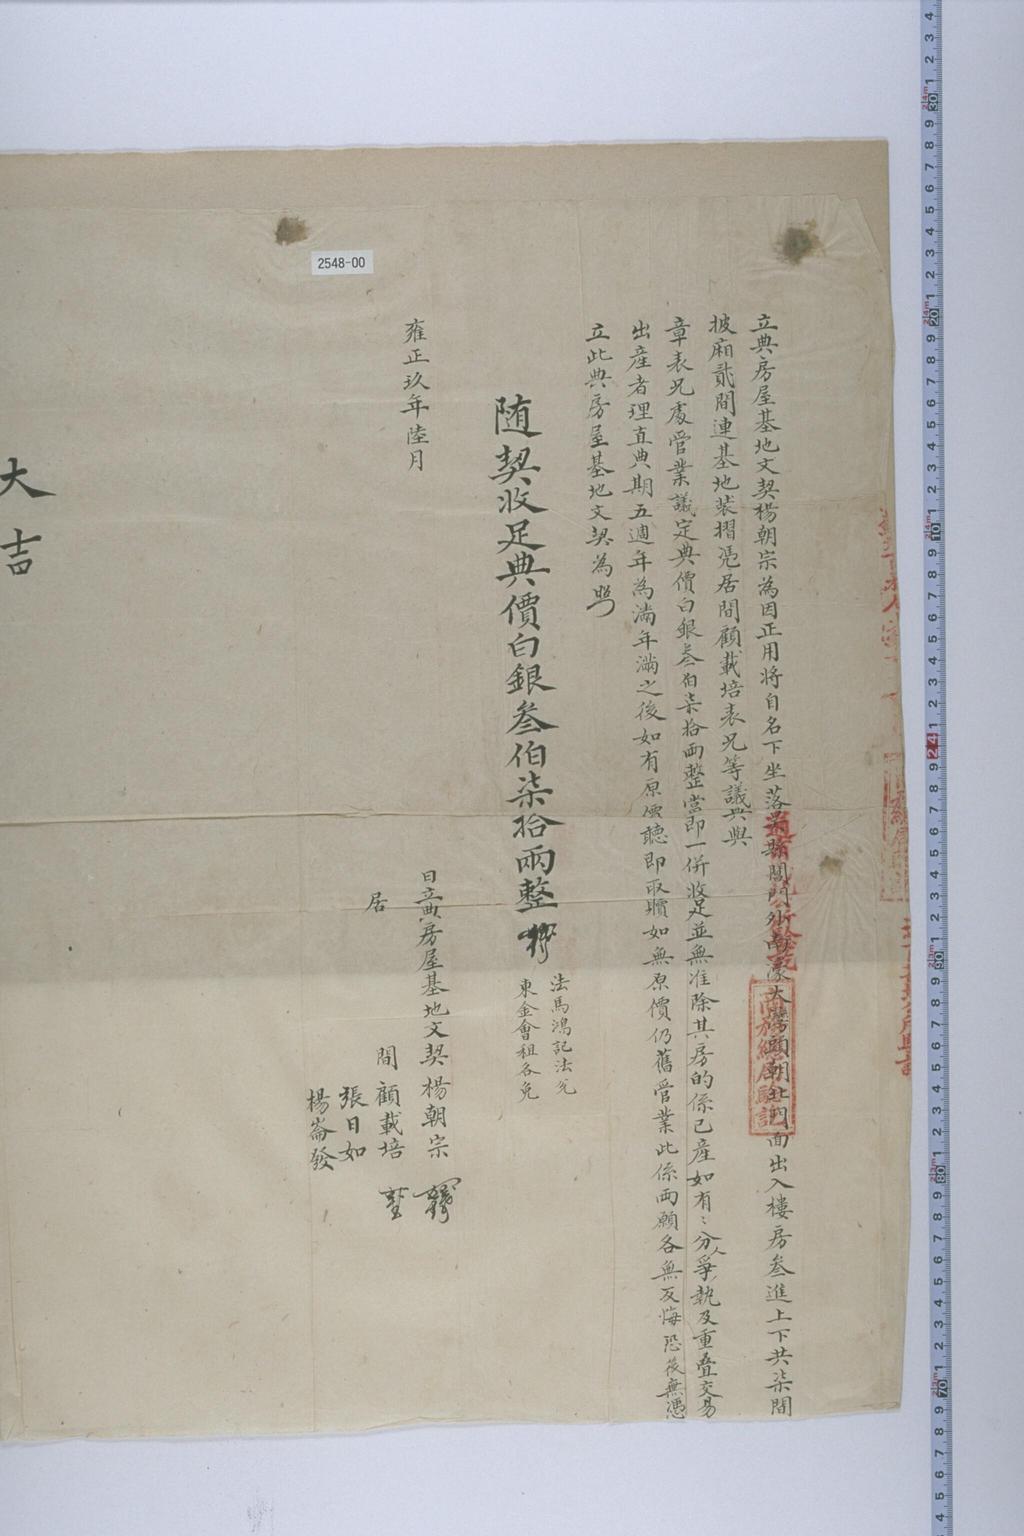 立典房屋基地文契楊朝宗為因正用將自名下坐落吳縣閶門外南濠大灣頭朝北門面出入樓房叁進上下共柒間
披廂貳間連基地裝摺凴居間顧載培表兄等議典與
章表兄處管業議定典價白銀叁伯柒拾兩整當即一併收足並無准除其房的係已產如有分人爭執及重疊交易
出產者理直典期五週年為滿年滿之後如有原價聽即取贖如無原價仍舊管業此係兩願各無反悔恐後無憑
立此典房屋基地文契為照
随契收足典價白銀叁伯柒拾兩整
法馬鴻記法兌
東金會租各免
雍正玖年陸月
日立典房屋基地文契楊朝宗
居
間
顧載培
張日如
楊崙發
大吉
2548-00